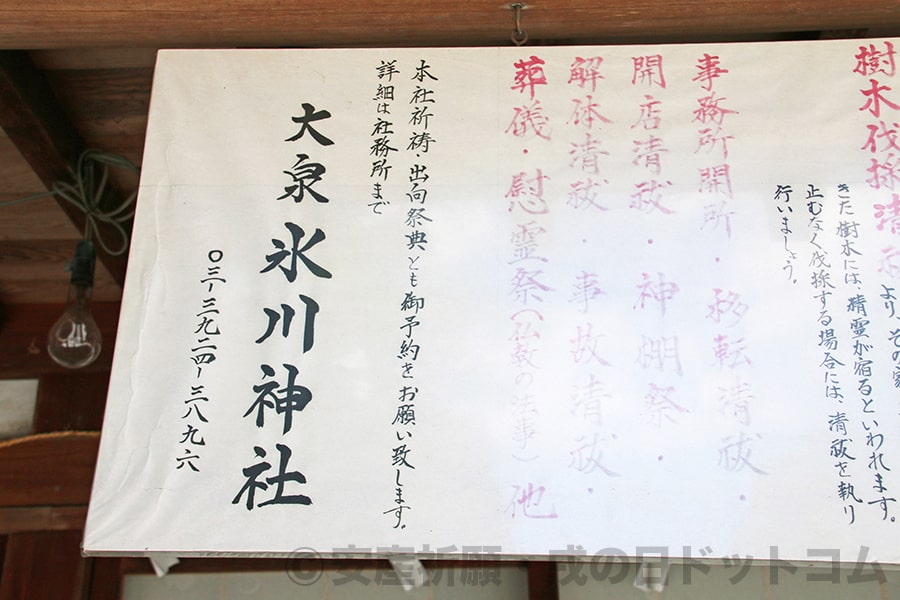 樹木伐採清祓
より、その家
きた樹木には、精霊が宿るといわれます。
止むなく伐採する場合には、清祓を執り
行いましょう。
事務所開所・移転清祓・
開店清祓・神棚祭・
解体清祓・事故清祓・
葬儀・慰霊祭(仏教の法事)他
本社祈祷・出向祭典とも御予約をお願い致します。
詳細は社務所まで
大泉氷川神社
〇三ー三九二四ー三八九六
©安産祈願・戌の日ドットコム